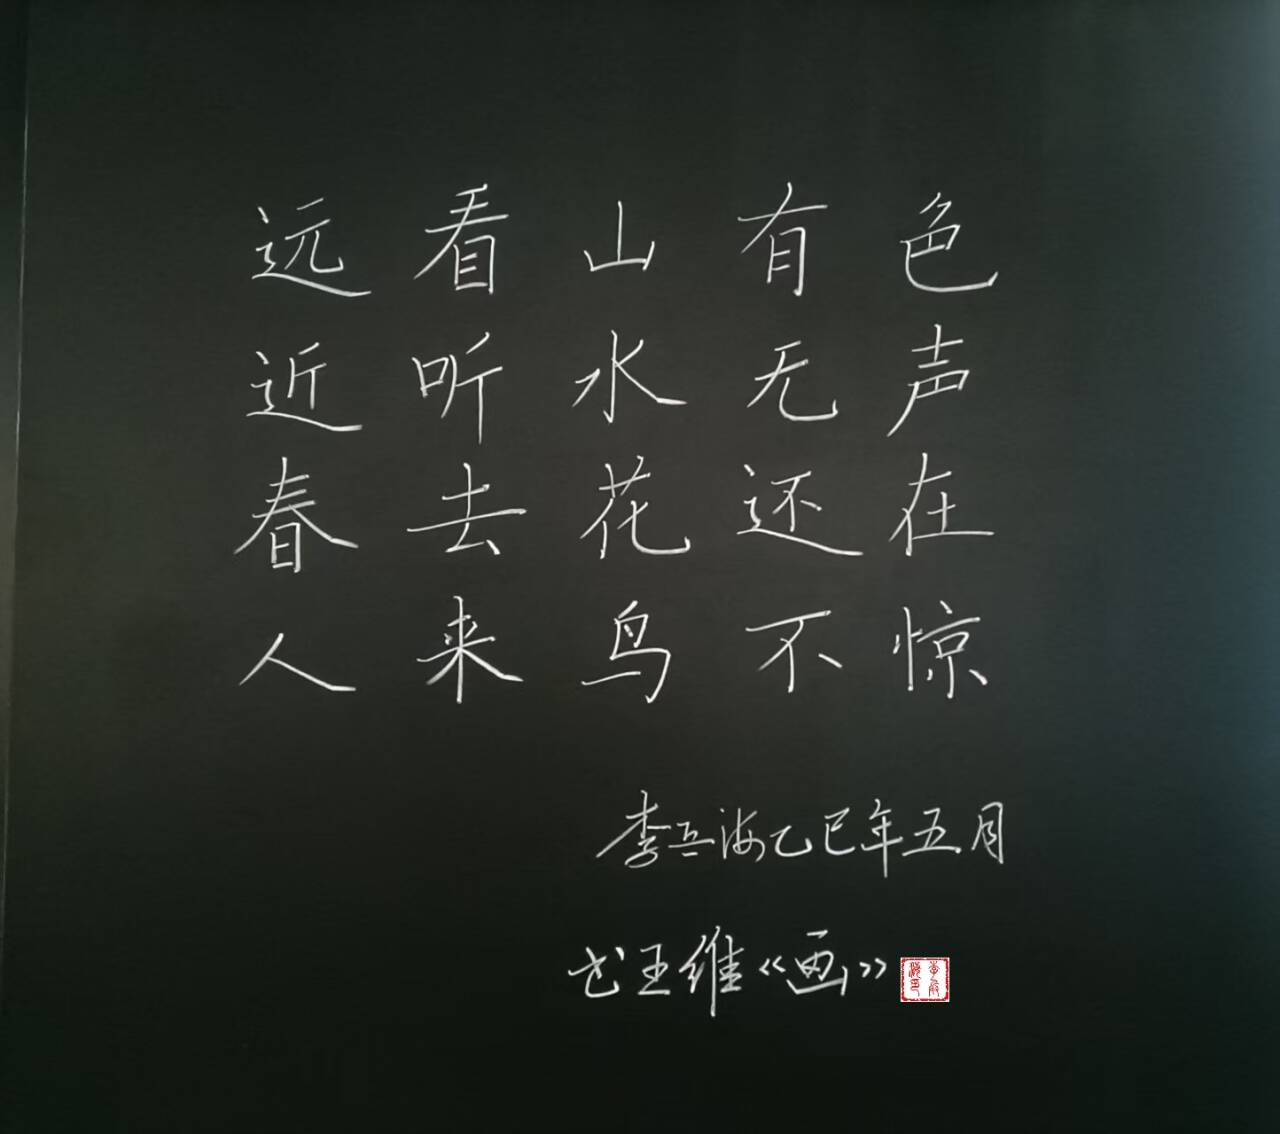 远看山有色
近听水无声
春去花还在
人来鸟不惊
李兵海乙巳年五月
书王维《画》